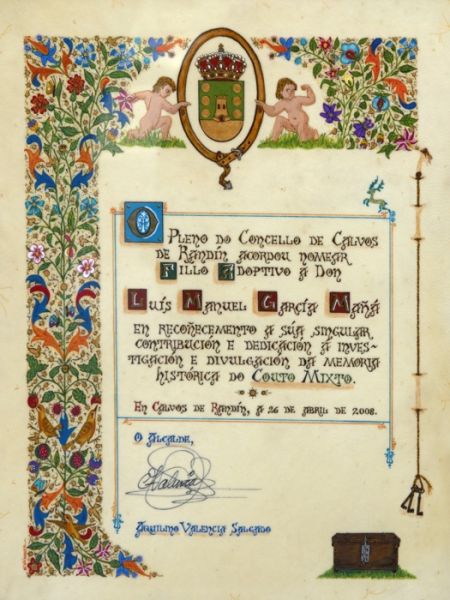 O Pleno do Concello de Calvos
de Randín acordou nomear
Fillo Adoptivo a Don
Luís Manuel García Mañá
en recoñecemento a súa singular
contribución e dedicación á inves-
tigación e divulgación da memoria
histórica do Couto Mixto.
En Calvos de Randín, a 26 de abril de 2008.
O Alcalde,
Valencia
Aquilino Valencia Salgado